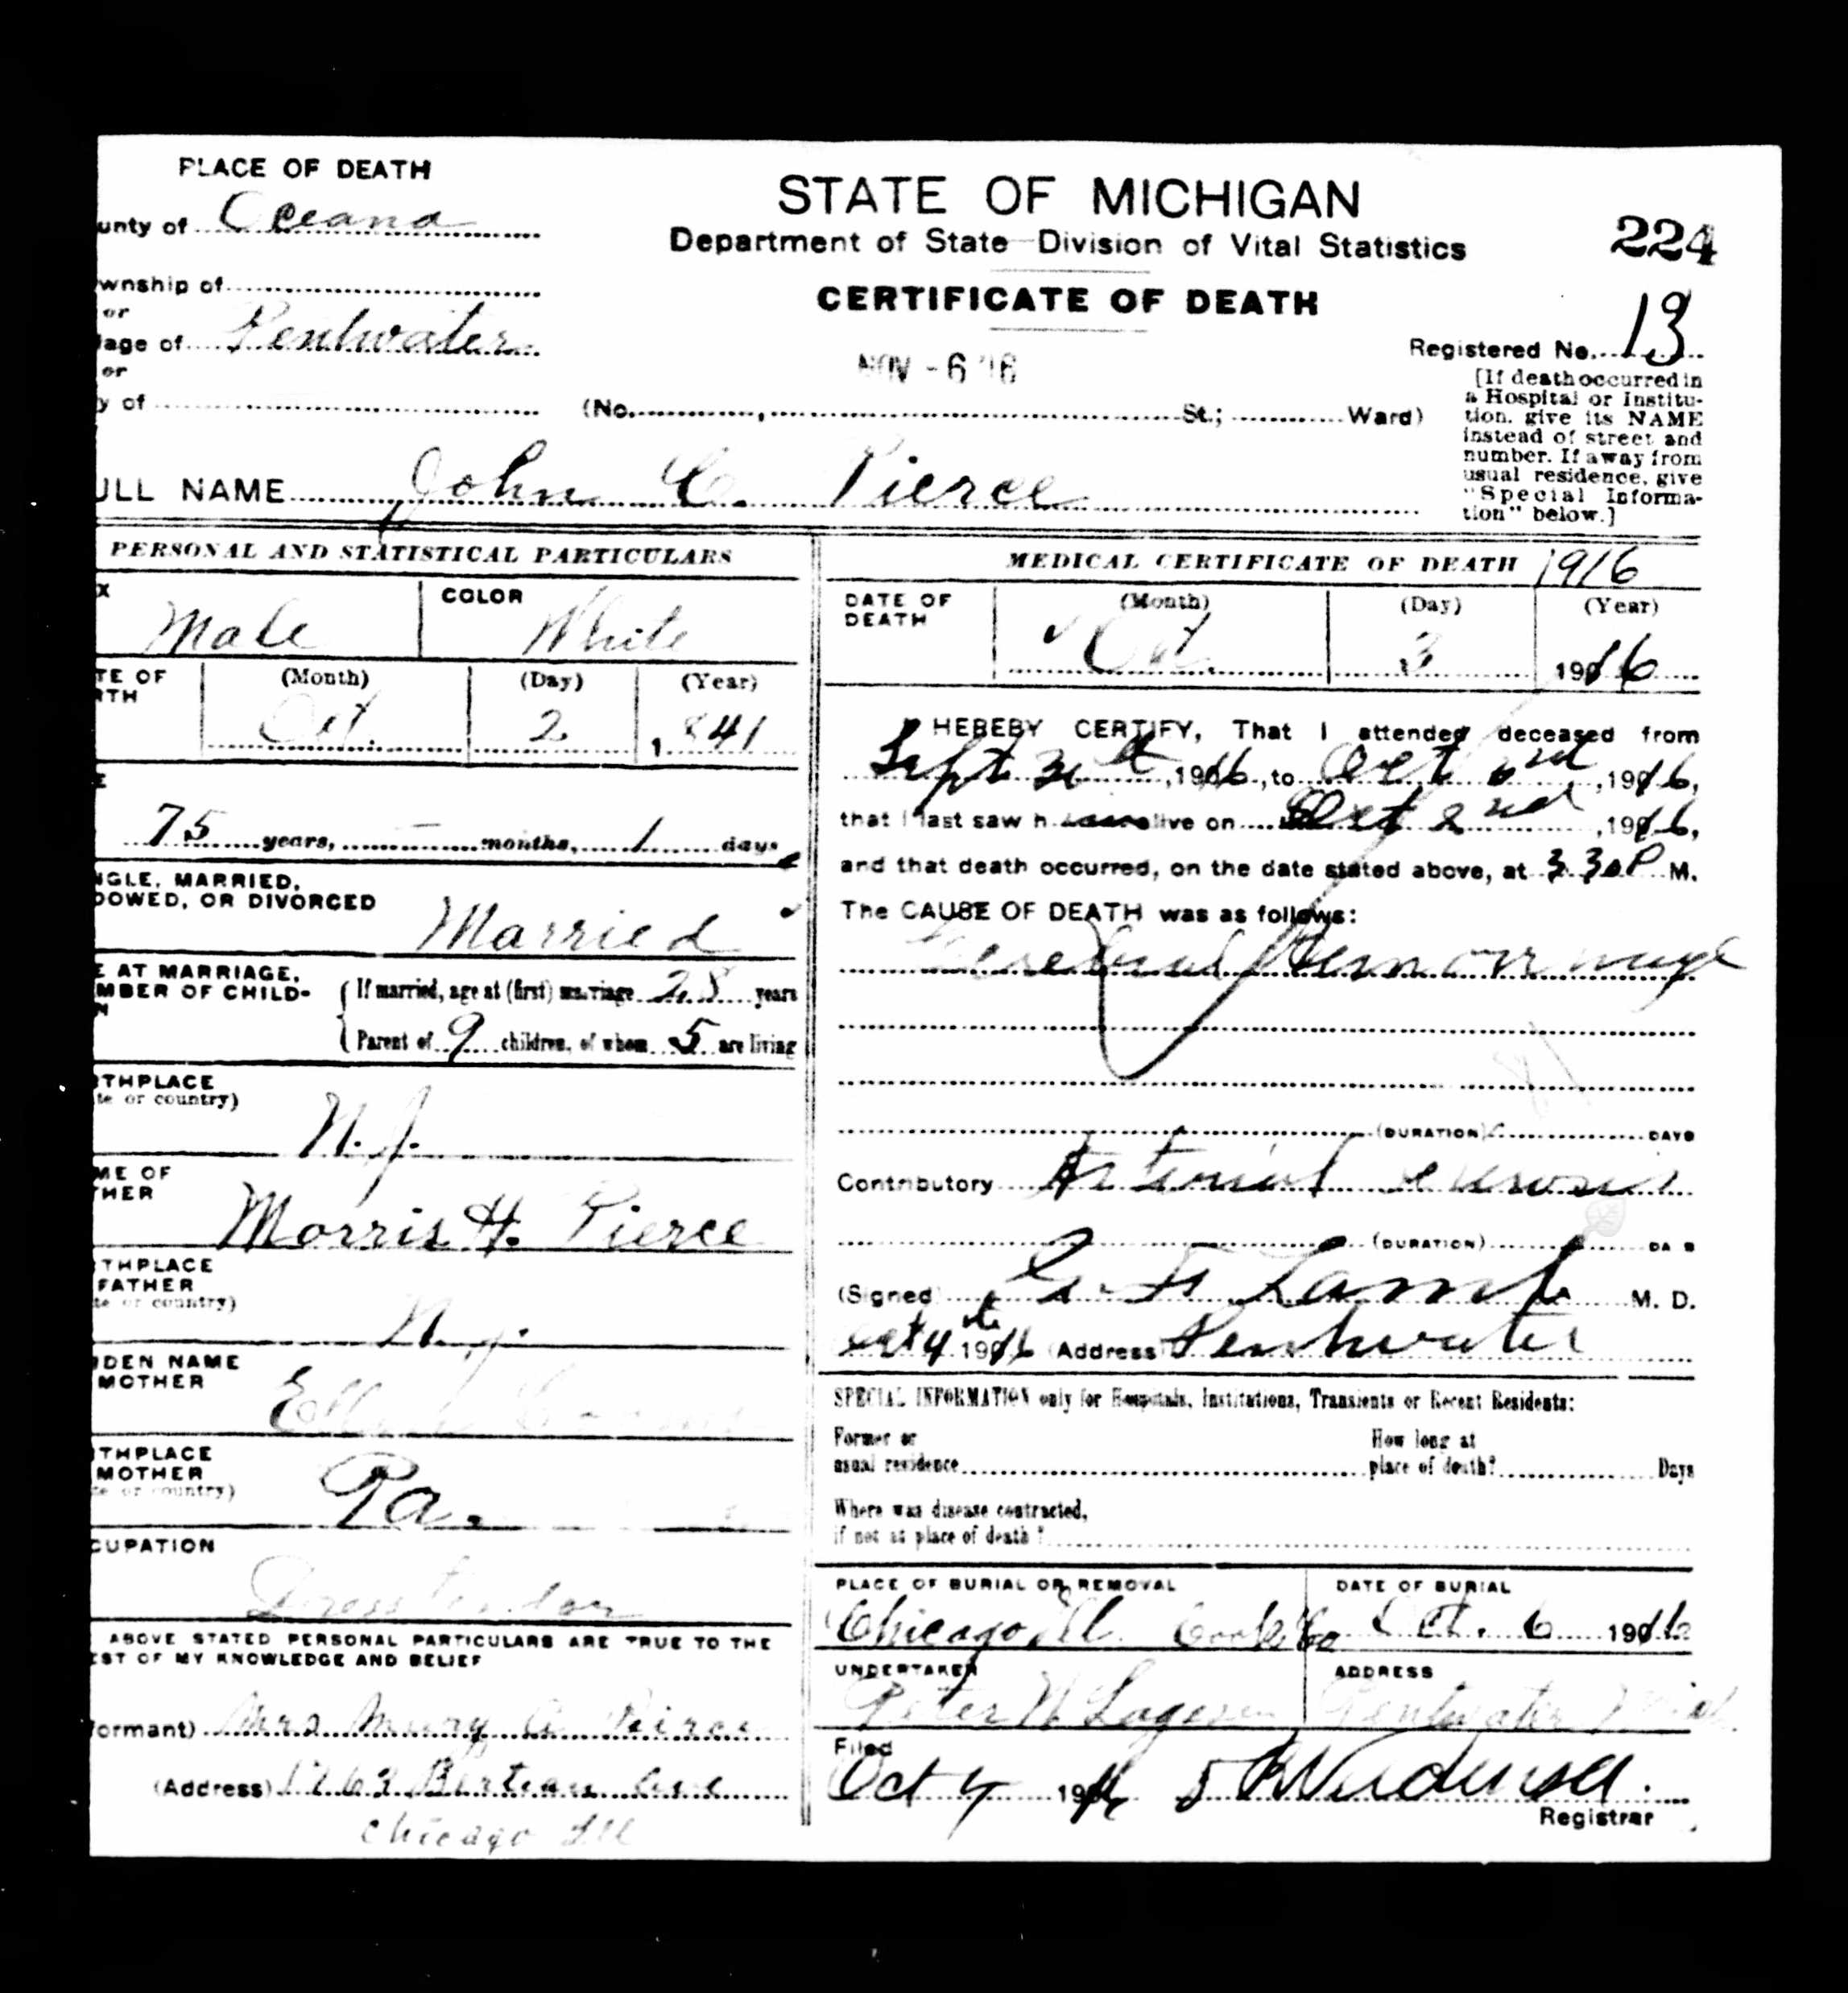 PLACE OF DEATH
unty of Oceana
wnship of
or
lage of Pentwater
or
y of
STATE OF MICHIGAN
Department of State—Division of Vital Statistics
CERTIFICATE OF DEATH
NOV - 6 '16
224
Registered No. 13
(No. , St.; Ward)
[If death occurred in
a Hospital or Institu-
tion, give its NAME
instead of street and
number. If away from
usual residence, give
"Special Informa-
tion" below.]
ULL NAME John C. Pierce
PERSONAL AND STATISTICAL PARTICULARS
X Male
COLOR White
TE OF
RTH
(Month) (Day) (Year)
Oct. 2 1,841
E
75 years, — months, 1 days
NGLE, MARRIED,
DOWED, OR DIVORCED
Married
E AT MARRIAGE,
MBER OF CHILD-
N
If married, age at (first) marriage 28 years
Parent of 9 children, of whom 5 are living
THPLACE
te or country)
N. J.
ME OF
THER
Morris H. Pierce
THPLACE
FATHER
te or country)
N. J.
DEN NAME
MOTHER
THPLACE
MOTHER
te or country)
Pa.
CUPATION
ABOVE STATED PERSONAL PARTICULARS ARE TRUE TO THE
ST OF MY KNOWLEDGE AND BELIEF
formant) Mrs Mary A Pierce
(Address) 1763 Berteau Ave
Chicago Ill
MEDICAL CERTIFICATE OF DEATH 1916
DATE OF
DEATH
(Month) (Day) (Year)
Oct. 3 1916
HEREBY CERTIFY, That I attended deceased from
Sept , 1916, to Oct , 1916,
that I last saw h alive on Oct 2nd , 1916,
and that death occurred, on the date stated above, at 3 30 P M.
The CAUSE OF DEATH was as follows:
Cerebral Hemorrhage
(DURATION) DAYS
Contributory Arterial sclerosis
(DURATION) DAYS
(Signed) G. F. Lamb M. D.
Oct 4th 1916 (Address) Pentwater
SPECIAL INFORMATION only for Hospitals, Institutions, Transients or Recent Residents:
Former or
usual residence
How long at
place of death? Days
Where was disease contracted,
if not at place of death?
PLACE OF BURIAL OR REMOVAL
Chicago Ill. Cook Co
DATE OF BURIAL
Oct. 6 1916
UNDERTAKER
Peter N
ADDRESS
Pentwater Mich.
Filed
Oct 4 1916
Registrar